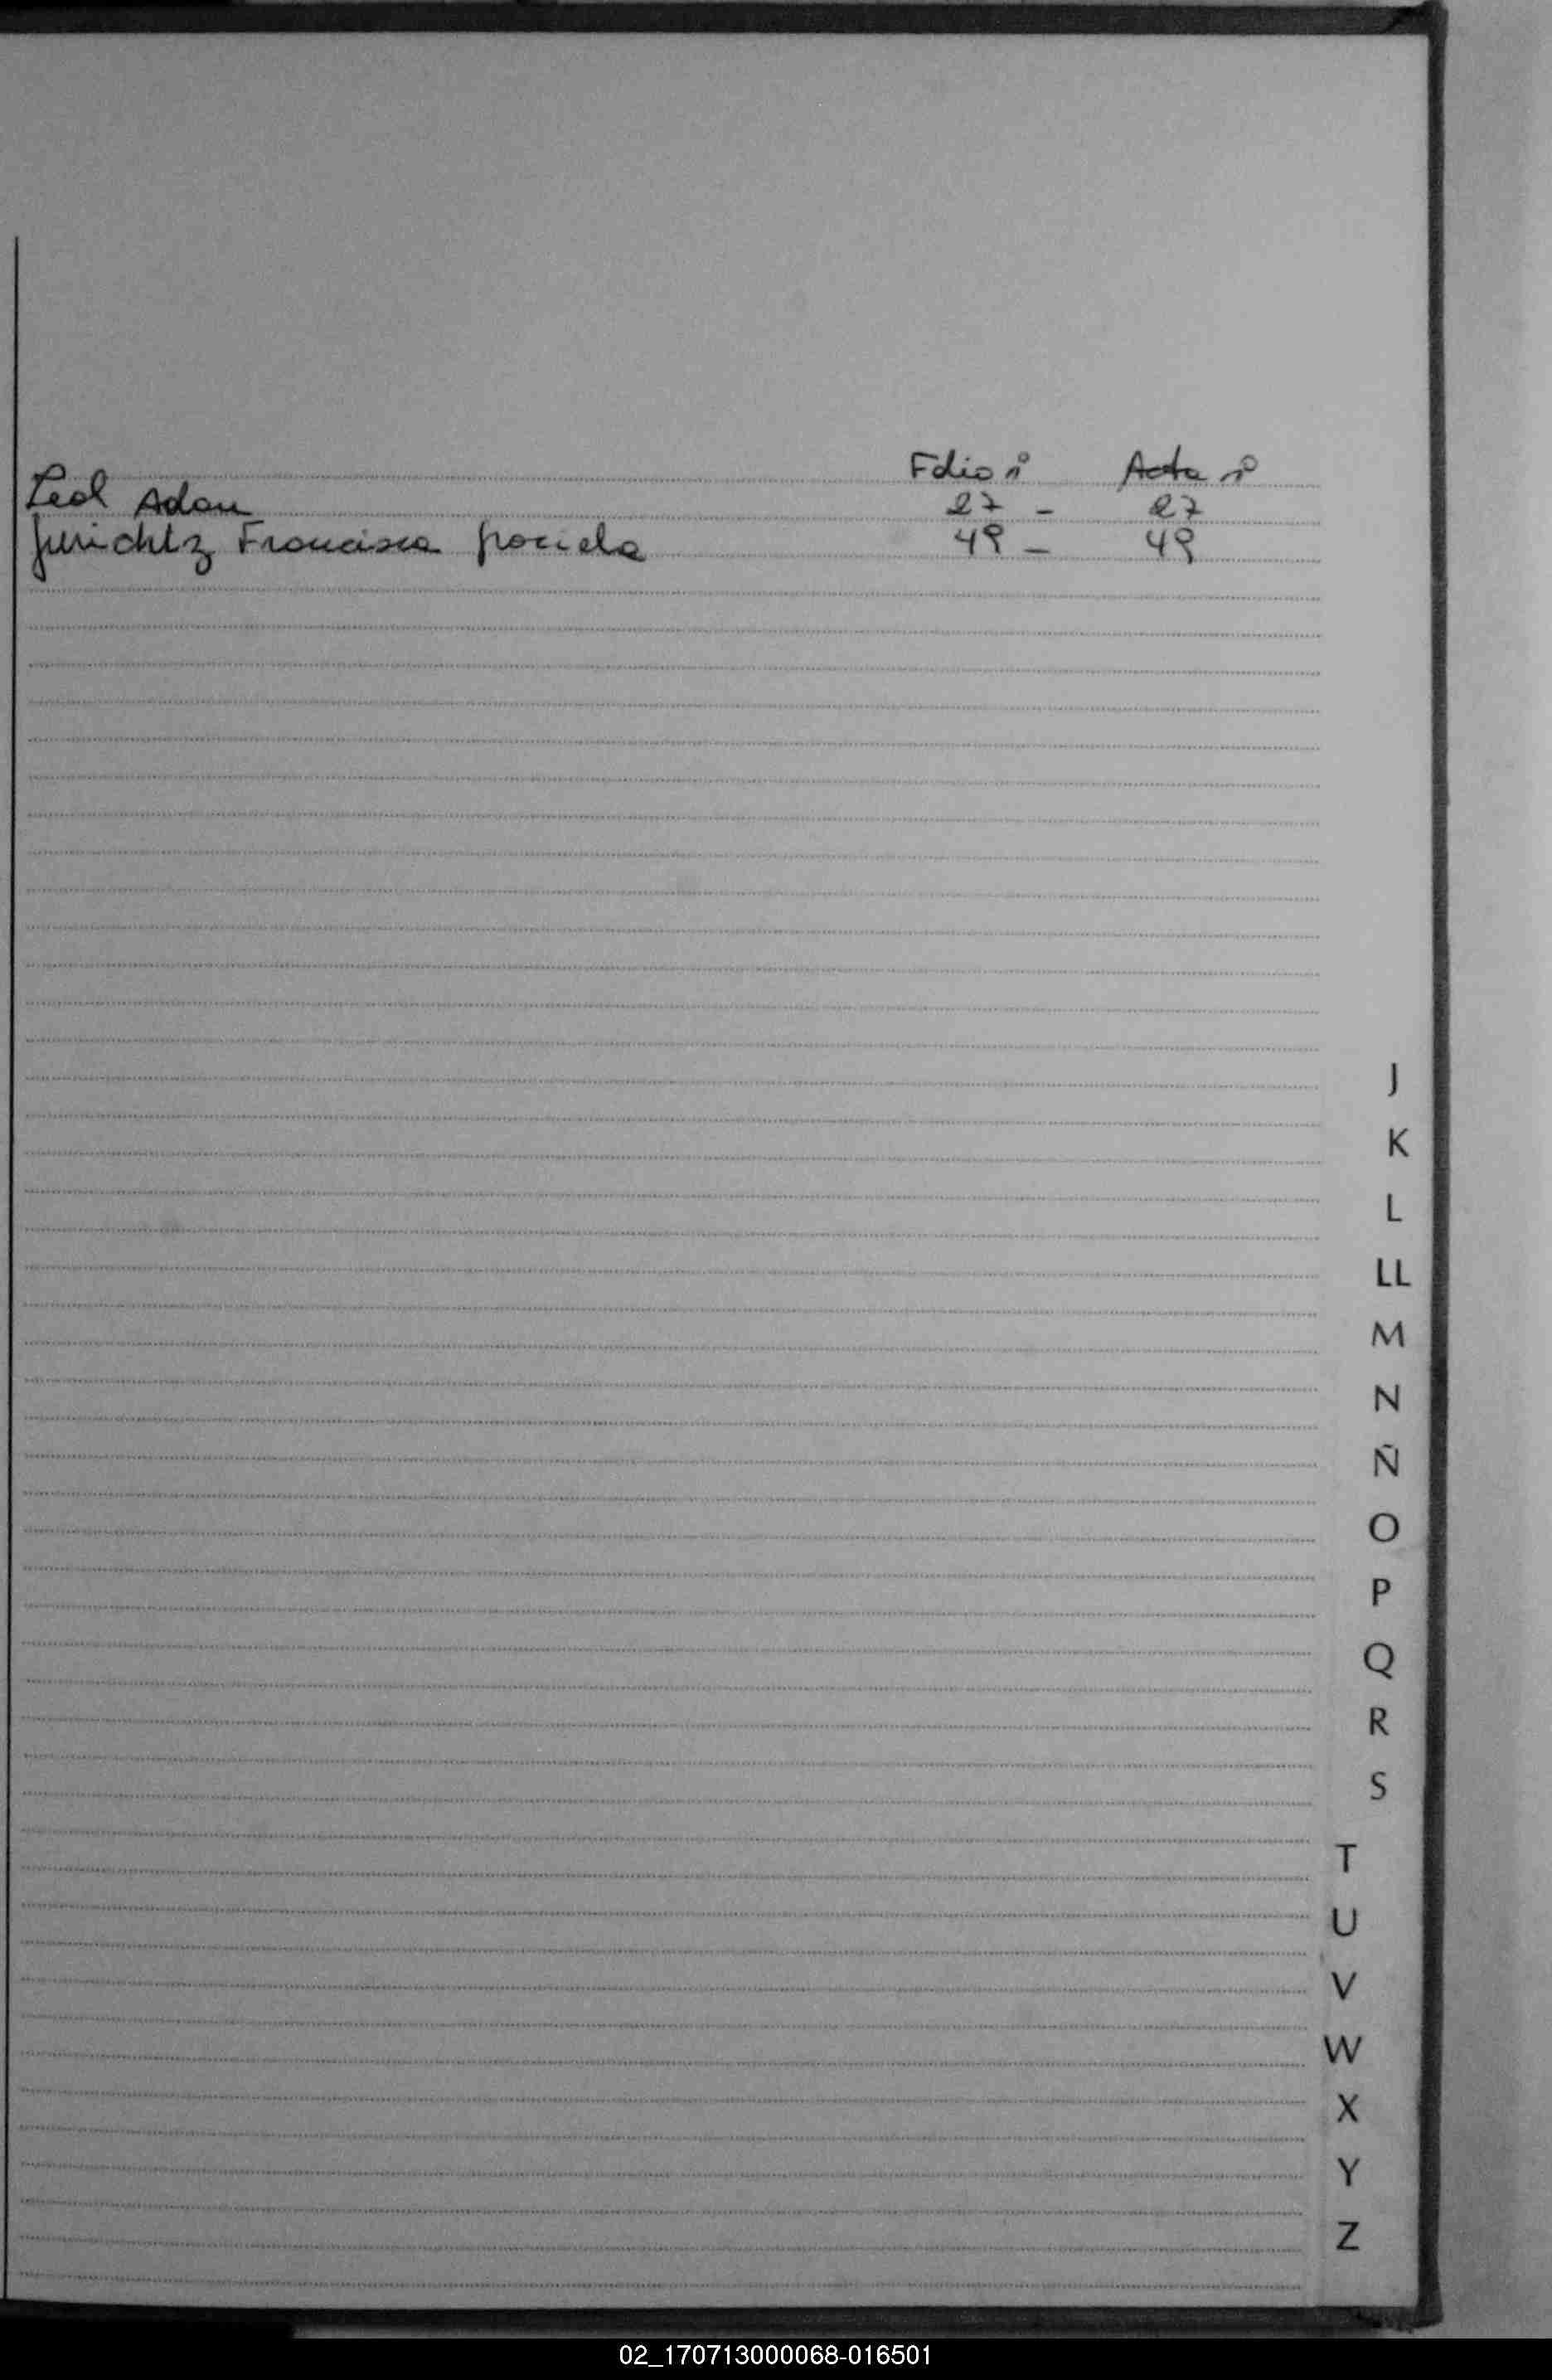 Folio nº Acta nº
Leal Adan 27 - 27
Jurichtz Francisca Graciela 49 - 49
J
K
L
LL
M
N
Ñ
O
P
Q
R
S
T
U
V
W
X
Y
Z
02_170713000068-016501